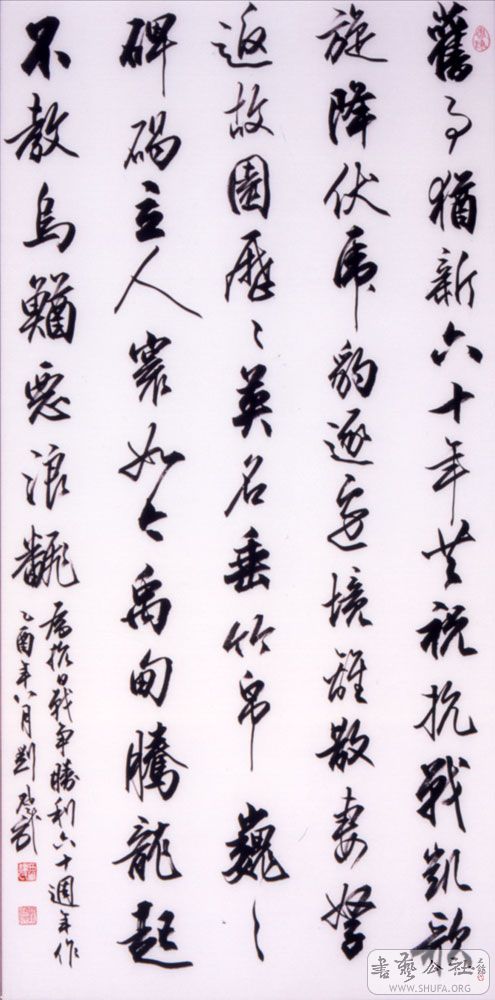 舊事猶新六十年共祝抗戰凱歌
旋降伏虎豹逐邊境離散妻孥
返故園歷々英名垂竹帛巍々
碑碣立人寰如今禹甸騰龍起
不教烏鰌惡浪翻
為抗日戰爭勝利六十週年作
乙酉年八月劉
書藝公社
WWW.SHUFA.ORG